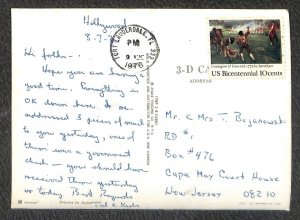 Hollywood
8-7-
Hi folks..
Hope you are having a
good time. Everything is
OK down here. Re-
addressed 3 pieces of mail
to you yesterday, one of
them was a government
check - you should have
received them yesterday
or today Best Regards
FORT LAUDERDALE, FL 333
PM
1976
Lexington & Concord 1775 by Sandham
US Bicentennial 10cents
3-D CA
ADDRESS
Mr. & Mrs T. Bojanowski
RD #1
Box #476
Cape May Court House
New Jersey
08210